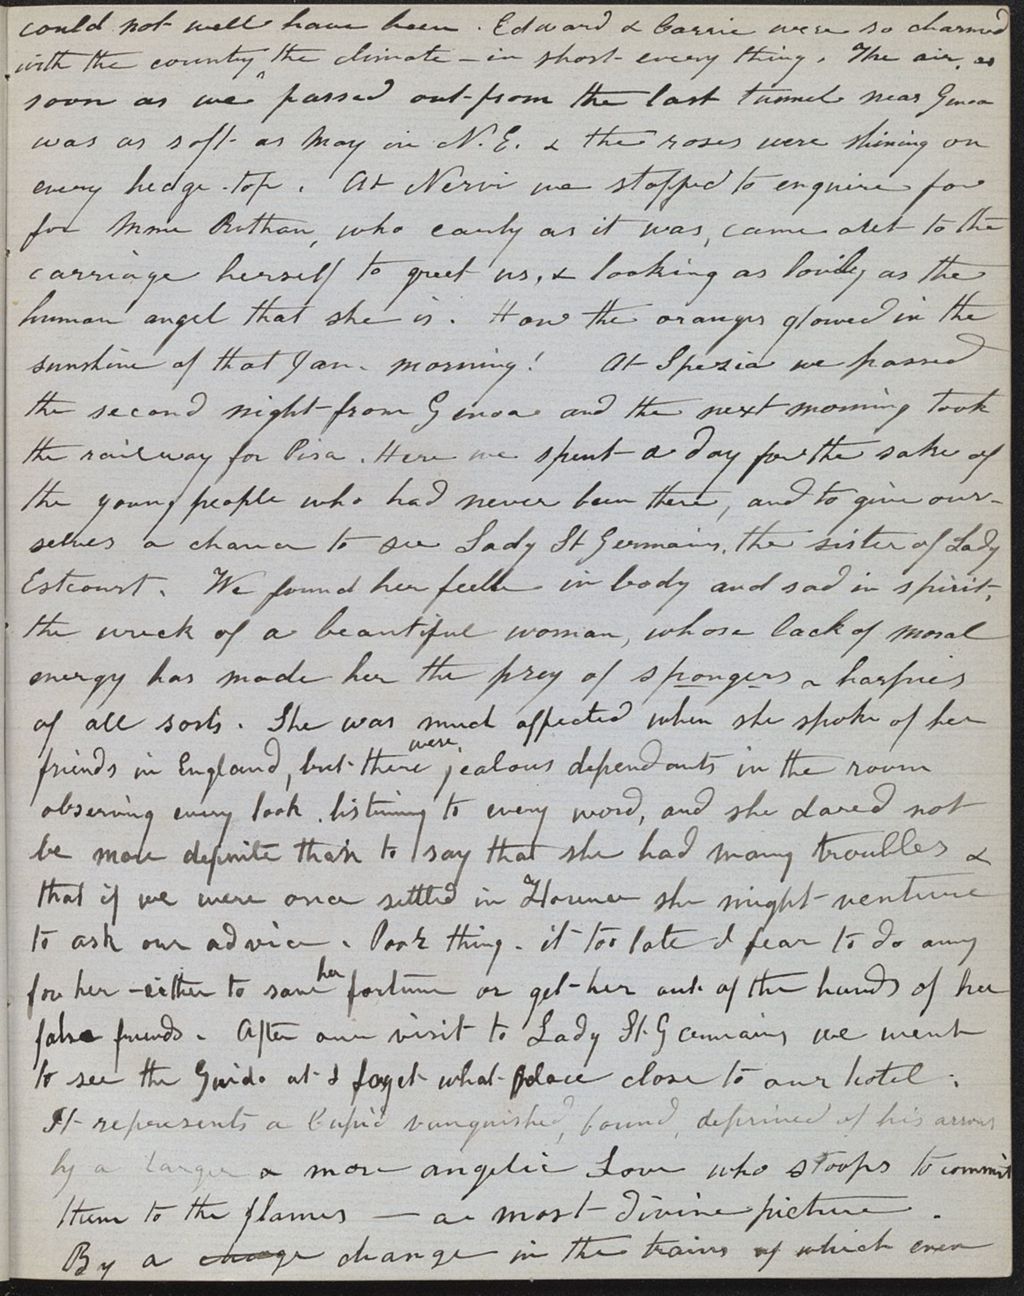 could not well have been. Edward & Carrie were so charmed
with the country, the climate - in short every thing. The air, as
soon as we passed out from the last tunnel near Genoa
was as soft as May in N.E. & the roses were shining on
every hedge-top. At Nervi we stopped to enquire for
for Mme Rothan, who early as it was, came out to the
carriage herself to greet us, & looking as lovely as the
human angel that she is. How the oranges glowed in the
sunshine of that Jan. morning! At Spezia we passed
the second night from Genoa and the next morning took
the railway for Pisa. Here we spent a day for the sake of
the young people who had never been there, and to give our-
selves a chance to see Lady St Germains, the sister of Lady
Estcourt. We found her feeble in body and sad in spirit,
the wreck of a beautiful woman, whose lack of moral
energy has made her the prey of spongers & harpies
of all sorts. She was much affected when she spoke of her
friends in England, but there were jealous dependants in the room
observing every look, listening to every word, and she dared not
be more definite than to say that she had many troubles &
that if we were once settled in Florence she might venture
to ask our advice. Poor thing. it too late I fear to do any
for her - either to save her fortune or get her out of the hands of her
false friends. After our visit to Lady St Germains we went
to see the Guido at I forget what place close to our hotel.
It represents a Cupid vanquished, bound, deprived of his arrows
by a larger & more angelic Love who stoops to commit
them to the flames — a most divine picture.
By a change in the trains of which even